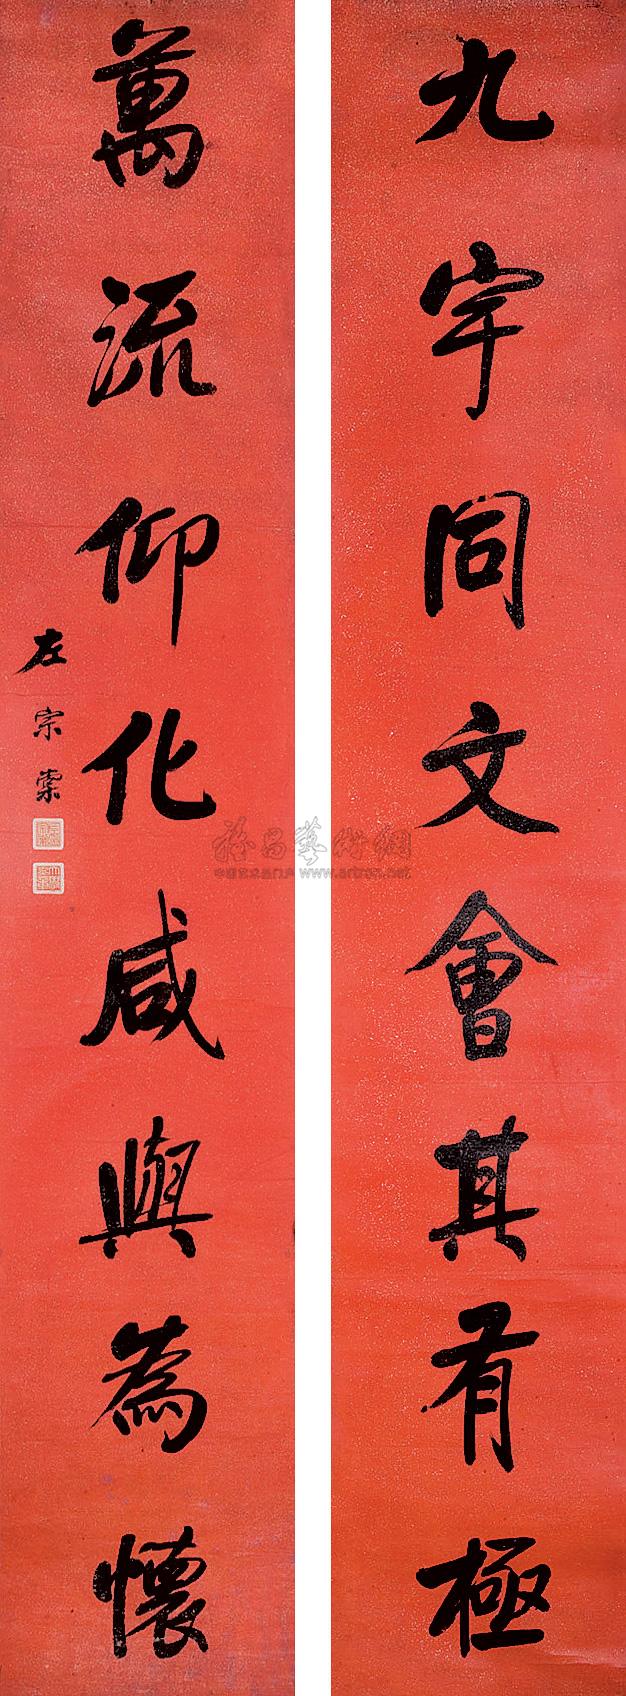 九宇同文會其有極
萬流仰化咸與為懷
左宗棠
雅昌藝術網
中国艺术品门户 www.artron.net